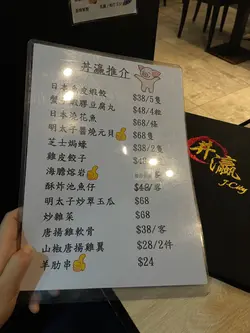 丼瀛推介
日本魚皮蝦餃 $38/5隻
蟹 蝦膠豆腐丸 $48/4粒
日本燒花魚 $68/條
明太子醬燒元貝 $68隻
芝士焗蠔 $38/2隻
雞皮餃子 $48/客
海膽熔岩 客
酥炸池魚仔 $48/客
明太子炒翠玉瓜 $68
炒雜菜 $68
唐揚雞軟骨 $38/客
山椒唐揚雞翼 $28/2件
羊肋串 $24
丼瀛
J-City